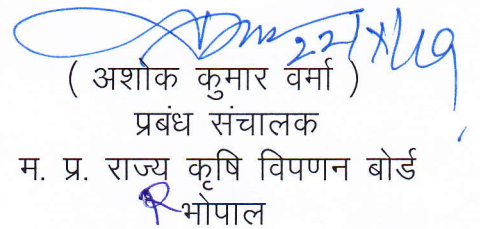 22/X/19
( अशोक कुमार वर्मा )
प्रबंध संचालक
म. प्र. राज्य कृषि विपणन बोर्ड
भोपाल